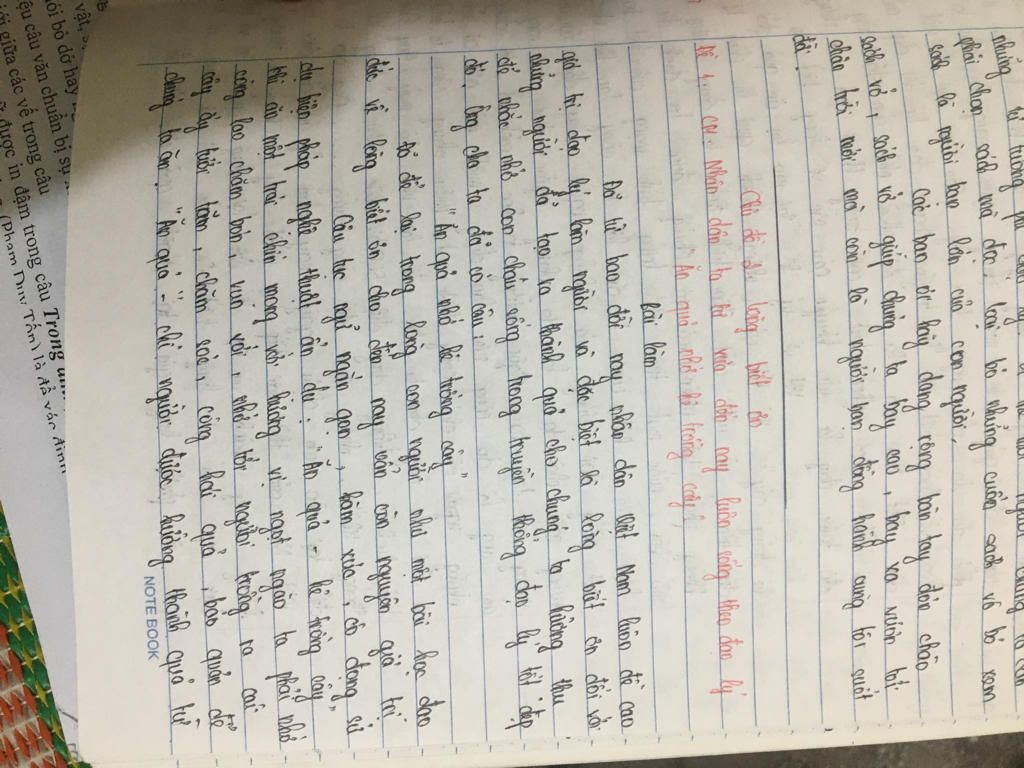 những tư tưởng
phải chọn sách mà đọc, loại bỏ những cuốn sách vô bổ xem
sách là người bạn lớn của con người.
Các bạn ơi hãy dang rộng bàn tay đón chào
sách vở, sách vở giúp chúng ta bay cao, bay xa vươn tới
chân trời mới mà còn là người bạn đồng hành cùng tôi suốt
đời.
Chủ đề 2: Lòng biết ơn
Đề 1: CM: Nhân dân ta từ xưa đến nay luôn sống theo đạo lý
"Ăn quả nhớ kẻ trồng cây"
Bài làm
Đã từ bao đời nay nhân dân Việt Nam luôn đề cao
giá trị đạo lý làm người và đặc biệt là lòng biết ơn đối với
những người đã tạo ra thành quả cho chúng ta hưởng thụ
để nhắc nhở con cháu sống trong truyền thống đạo lý tốt đẹp
đó, ông cha ta đã có câu:
"Ăn quả nhớ kẻ trồng cây"
Đã để lại trong lòng con người như một bài học đạo
đức về lòng biết ơn cho đến nay vẫn còn nguyên giá trị
Câu tục ngữ ngắn gọn, hàm súc, cô đọng sử
dụ biện pháp nghệ thuật ẩn dụ: "Ăn quả - kẻ trồng cây"
khi ăn một trái chín mọng với hương vị ngọt ngào ta phải nhớ
công lao chăm bón, vun xới, nhớ tới người trồng ra cái
cây ấy tưới tắm, chăm sóc, công hái quả, bảo quản để
chúng ta ăn. "Ăn quả" - chỉ người được hưởng thành quả từ
NOTEBOOK
vật,
nói bỏ dở hay
câu văn chuẩn bị sự
giữa các vế trong câu
được in đậm trong câu Trong
(Phạm Duy Tốn) là